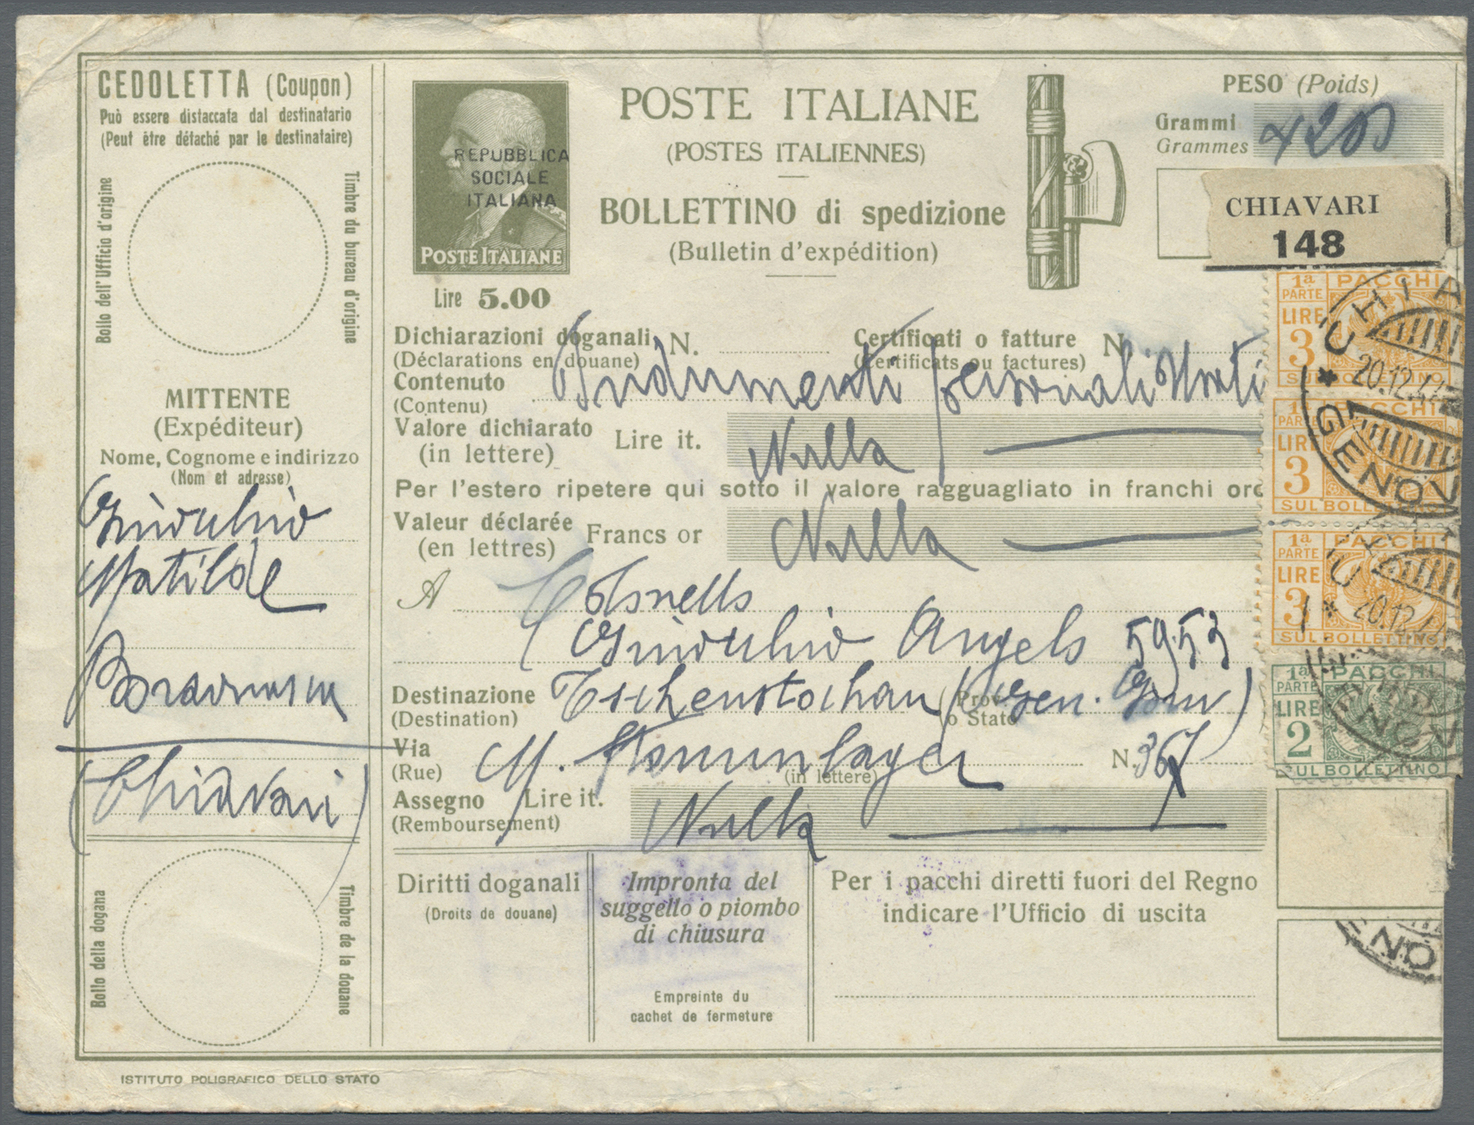 CEDOLETTA (Coupon)
Può essere distaccata dal destinatario
(Peut être détaché par le destinataire)
Bollo dell'Ufficio d'origine
Timbre du bureau d'origine
MITTENTE
(Expéditeur)
Nome, Cognome e indirizzo
(Nom et adresse)
Matilde
(Chiavari)
Bollo della dogana
Timbre de la douane
ISTITUTO POLIGRAFICO DELLO STATO
REPUBBLICA
SOCIALE
ITALIANA
POSTE ITALIANE
Lire 5.00
POSTE ITALIANE
(POSTES ITALIENNES)
BOLLETTINO di spedizione
(Bulletin d'expédition)
PESO (Poids)
Grammi
Grammes
4200
CHIAVARI
148
Dichiarazioni doganali N.
(Déclarations en douane)
Certificati o fatture N
(Certificats ou factures)
Contenuto Indumenti personali Usati
(Contenu)
Valore dichiarato Lire it. Nulla
(in lettere)
Per l'estero ripetere qui sotto il valore ragguagliato in franchi oro
Valeur déclarée Francs or Nulla
(en lettres)
A
Angelo 5953
Destinazione Tschenstochau (Gen. Gouv)
(Destination)
Prov.
o Stato
Via M. Stammlager N. 367
(Rue)
(in lettere)
Assegno Lire it. Nulla
(Remboursement)
Diritti doganali
(Droits de douane)
Impronta del
suggello o piombo
di chiusura
Empreinte du
cachet de fermeture
Per i pacchi diretti fuori del Regno
indicare l'Ufficio di uscita
1ª PARTE PACCHI
LIRE 3
SUL BOLLETTINO
1ª PARTE PACCHI
LIRE 3
SUL BOLLETTINO
1ª PARTE PACCHI
LIRE 3
SUL BOLLETTINO
1ª PARTE PACCHI
LIRE 2
SUL BOLLETTINO
CHIA
20.12.4
GENOV
CHIA
20.12.4
GENOV
ENO